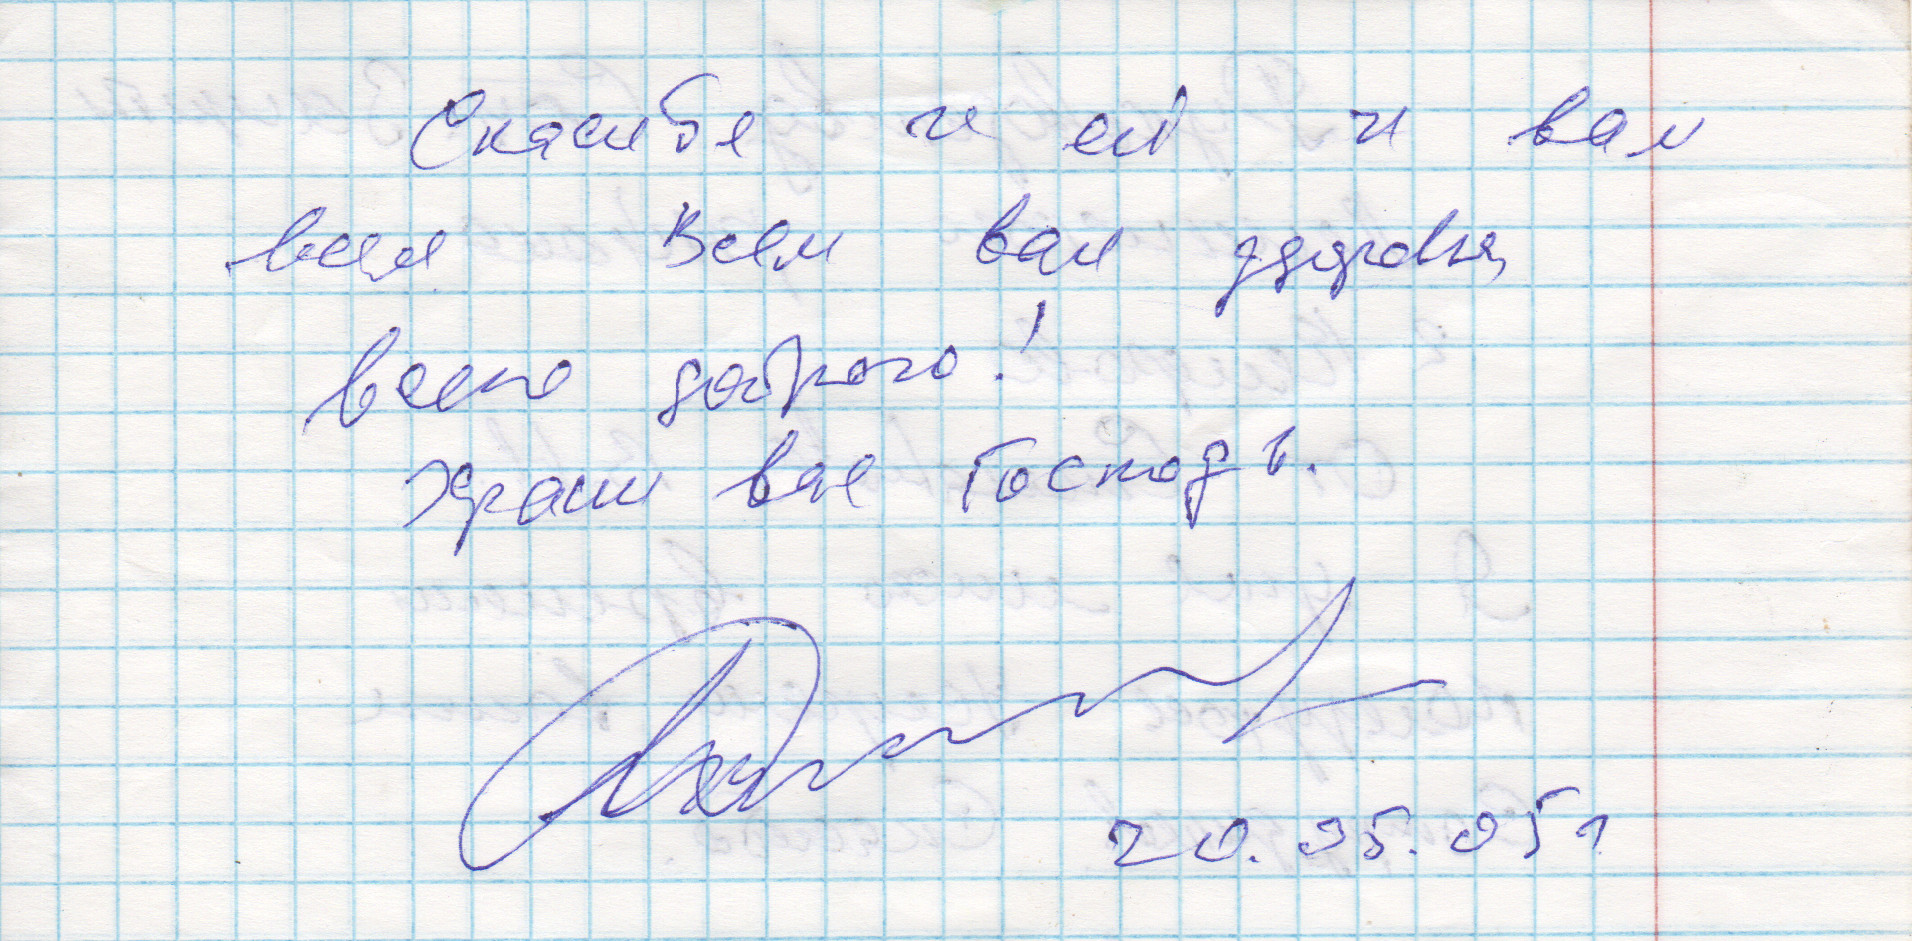 Спасибо и ей и вам
всем Всем вам здоровья,
всего доброго!
Храни вас Господь.
20.05.05 г